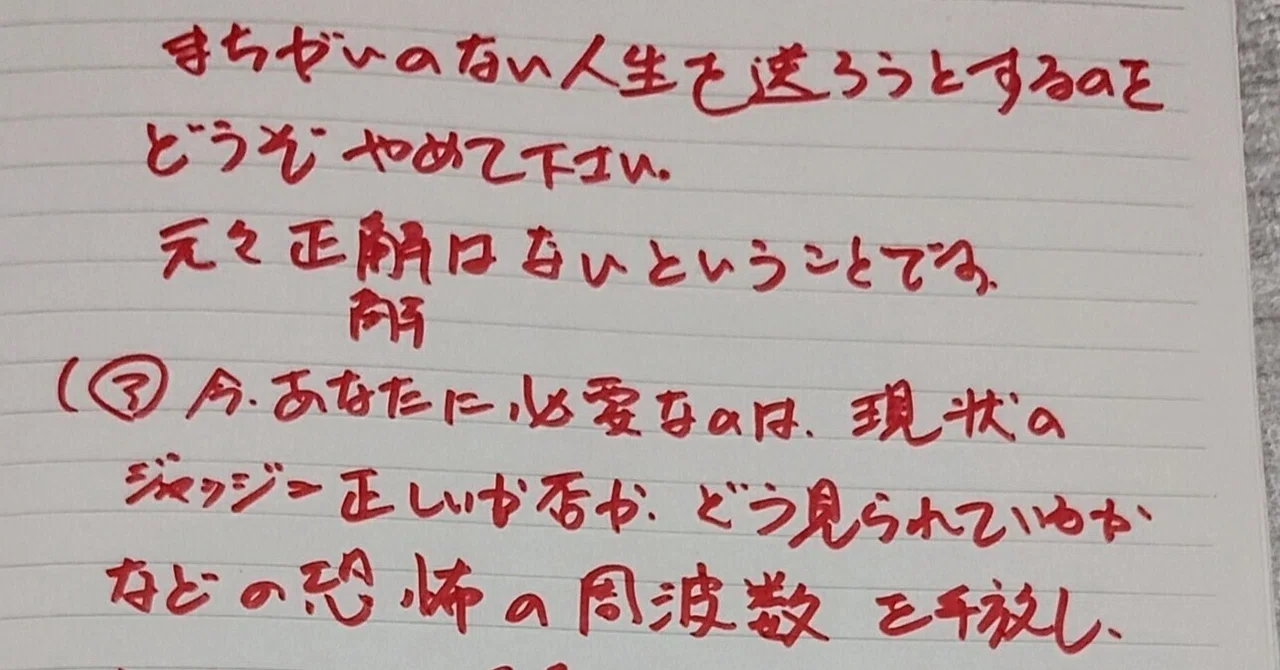 まちがいのない人生を送ろうとするのを
どうぞやめて下さい。
元々正解はないということです。
解
(ア 今、あなたに必要なのは、現状の
ジャッジ= 正しいか否か、どう見られているか
などの恐怖の周波数を手放し、